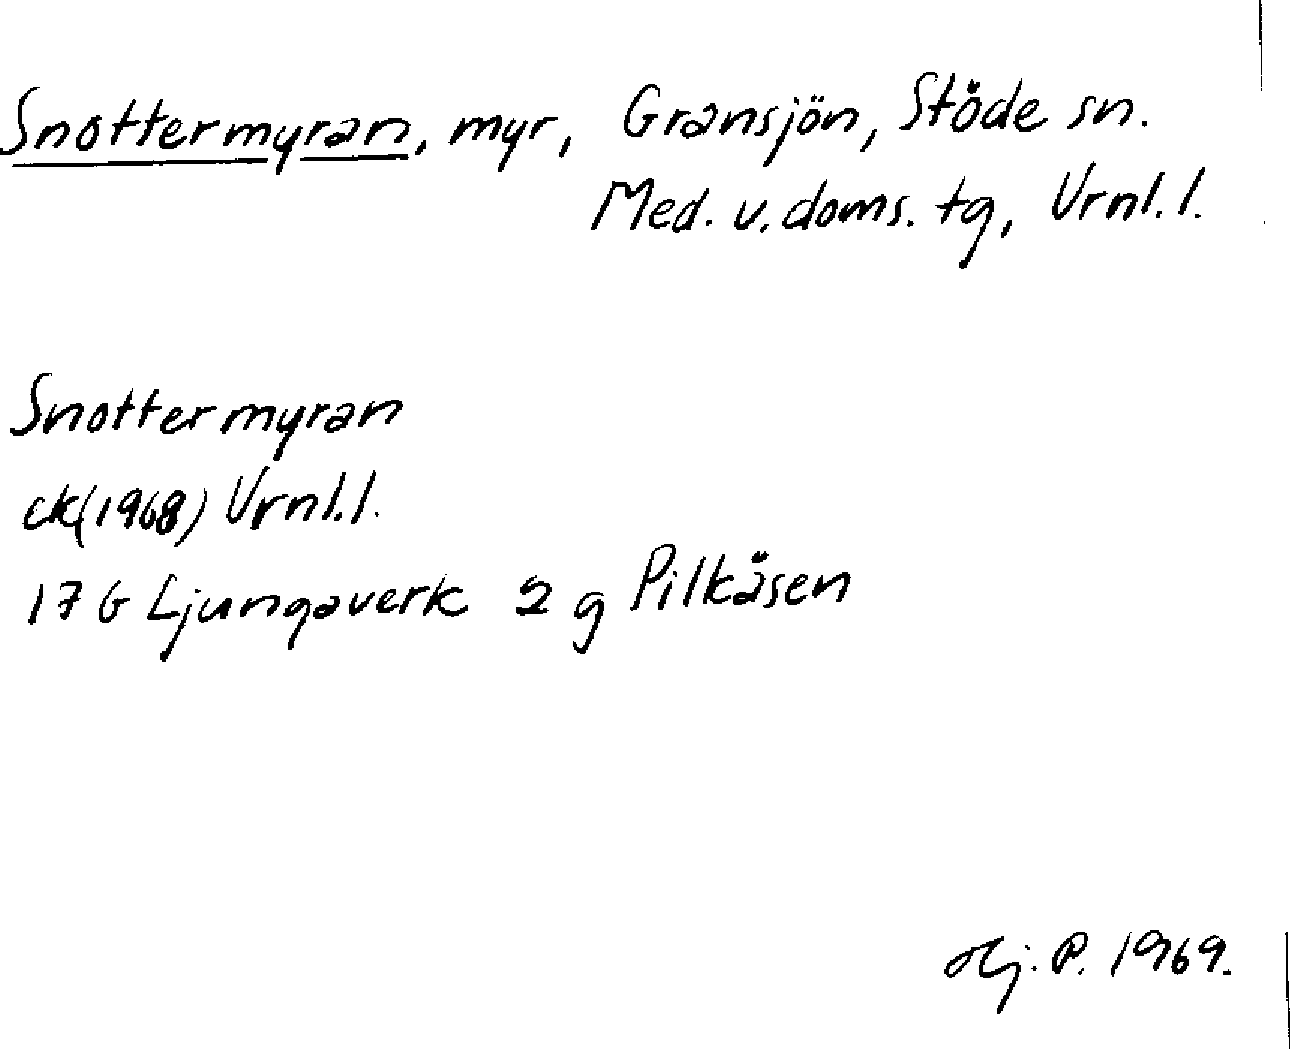 Snottermyran, myr, Gransjön, Stöde sn.
Med. v. doms. tg, Vrnl. l.
Snottermyran
ck (1968) Vrnl. l.
17 G Ljungaverk 2 g Pilkåsen
Hj. P. 1969.